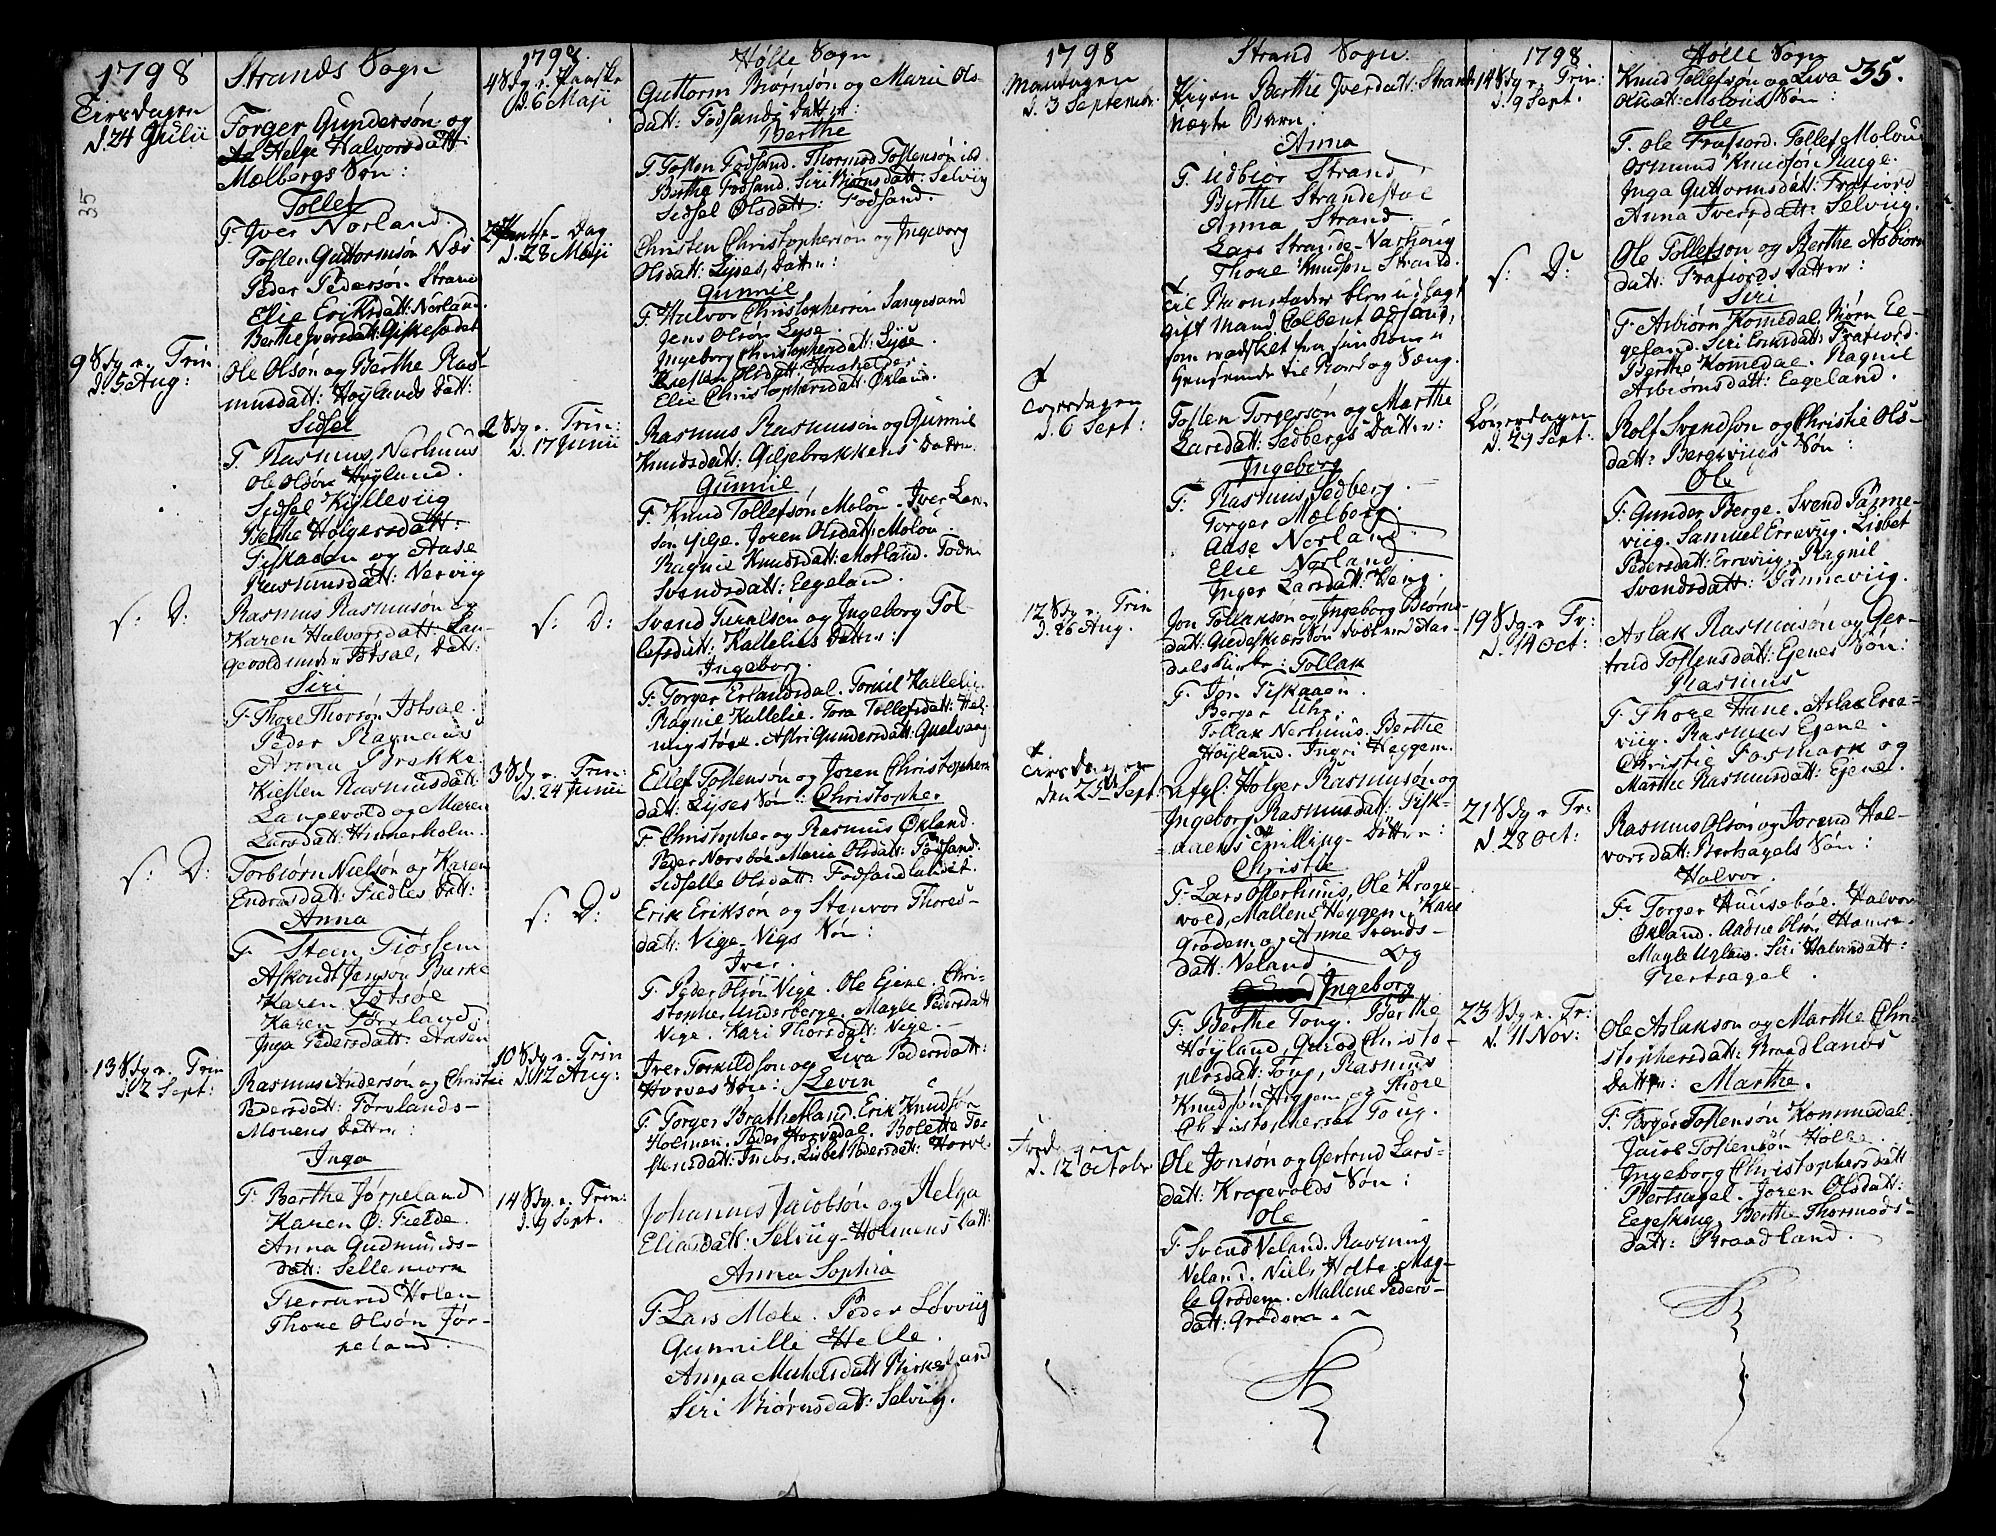 1798
Tirsdagen
d. 24 Julii
Strands Sogn
Torger Gundersøn og
Helge Halvorsdatt:
Mælbergs Søn:
Tollef
F. Iver Norland.
Tosten Guttormsøn Næs
Peder Pedersøn Strand
Elie Eriksdatt: Norland
Berthe Iversdatt:
9 Sdg. e. Trin
d. 5 Aug:
Ole Olsøn og Berthe Ras-
musdatt: Høylands Datt:
Sidsel
F. Rasmus Nerhuus
Ole Olsøn Høyland.
Sidsel Kylleviig
Berthe Holgersdatt:
Fiskaaen og Aase
Rasmusdatt: Nerviig
s: D:
Rasmus Rasmusøn og
Karen Halvorsdatt: Lan-
gevold under Botsal, Datt:
Siri
F. Thore Thorsøn Botsal.
Peder Ragnaus
Anna Brekke.
Kiesten Rasmusdatt
Langevold og Maren
Larsdatt: Himmerholm.
s: D:
Torbiørn Nielsøn og Karen
Endresdatt: Fiedles Datt:
Anna
F. Steen Tiøssem
Askondt Jansøn Barke
Karen Botsøe
Karen Førland
Inga Pedersdatt: Aasen
13 Sdg. e. Trin
d. 2 Sept:
Rasmus Andersøn og Christie
Pedersdatt: Førelands-
Monens Datter:
Inga
F. Berthe Jørpeland
Karen Ø. Fielde.
Anna Gudmunds-
datt: Sellemork
Tierrand Holen
Thore Olsøn Jør-
peland.
1798.
4 Sdg. e. Paaske
d. 6 Maji
Hølle Sogn
Guttorm Biørnsøn og Marie Ols-
datt: Fodsands Datter:
Berthe
F. Tosten Fodsand. Thormod Tostensøn ibd.
Berthe Fodsand. Siri Biørnsdatt: Selviig
Sidsel Olsdatt: Fodsand.
2 Pintse-Dag
d. 28 Maji
Christen Christophersøn og Ingeborg
Olsdatt: Lyses, Datter:
Gunnil
F. Halvor Christophersøn Sangesand
Jens Olsøn Lyse.
Ingeborg Christophersdatt: Lyse.
Kiesten Olsdatt: Haaheller
Elie Christophersdatt: Økland.
2 Sdg. e. Trin:
d. 17 Junii
Rasmus Rasmusøn og Gunnil
Knudsdatt: Giljebrekkens Datter.
Gunnil
F. Knud Tollefsøn Molou. Iver Lar-
sen Gilje. Joren Olsdatt: Molou.
Ragnil Knudsdatt: Morland. Todne
Svendsdatt: Eegeland.
s: D:
Svend Turalsøn og Ingeborg Tol-
lefsdatt: Kallelies Datter:
Ingeborg.
F. Torger Erlandsdal. Torkil Kallelie.
Ragnil Kallelie. Tora Tollefsdatt: Hel-
ningstøe. Astri Gundersdatt:
3 Sdg. e. Trin:
d. 24 Junii
Ellef Tostensøn og Joren Christopher
datt: Lyses Søn: Christopher
F. Christopher og Rasmus Økland.
Peder Nørsbøe. Maria Olsdatt: Fodsand.
Sidselle Olsdatt: Fodsandlandet.
s: D:
Erik Eriksøn og Stenvor Thores-
datt: Vige-Vigs Søn:
Iver.
F. Peder Olsøn Vige. Ole Ejene. Chri-
stopher Underberge. Magle Pedersdatt
Vige. Kari Thorsdatt: Vige.
10 Sdg. e. Trin
d. 12 Aug:
Iver Torkildsøn og Liva Pedersdatt:
Horves Søn: Levin
F. Torger Bratheland. Erik Knudsøn
Holmen. Peder Horvedal. Bolette To-
stensdatt: Imbs. Lisbet Pedersdatt: Horve.
14 Sdg. e. Trin:
d. 9 Sept.
Johannes Jacobsøn og Helga
Eliasdatt: Selviig-Holmens Datt:
Anna Sophia
F. Lars Mæle. Peder Løvviig
Gunnille Helle.
Anna Mikelsdatt: Birkeland
Siri Biørnsdatt: Selviig.
1798
Mandagen
d. 3 Septembr.
Strand Sogn.
Pigen Berthe Iversdatt: Strand
uægte Barn.
Anna
F. Udbiør Strand
Berthe Strandestøl
Anna Strand.
Lars Strande-Varhoug
Thore Knudsøn Strand.
Til Barnefader blev udlagt
gift Mand Colbent Adsand,
som
henseende til Bord og Sæng.
Torsdagen
d. 6 Sept:
Tosten Torgersøn og Marthe
Larsdatt: Sedbergs Datter:
Ingeborg
F. Rasmus Sedberg.
Torger Mælberg.
Aase Norland
Elie Norland
Inger Larsdatt: Heng.
12 Sdg. e. Trin
d. 26 Aug.
Jon Tollaksøn og Ingeborg Biørns-
datt: Giedeskiærs Søn døbt ved Aar-
dals Kirke: Tollak
F. Jon Fiskaaen.
Berger Uhr.
Tollak Nerhuus. Berthe
Høyland. Ingri Heggem.
Tirsdagen
den 25de Sept:
Afgl: Holger Rasmusøn og
Ingeborg Rasmusdatt: Fisk-
aaens Tvilling-Døttre:
Christie
F. Lars Osterhuus, Ole Kroge-
vold, Mallene Heggem, Kari
Grødem og Anne Svends-
datt: Veland. Og
Ingeborg
F. Berthe Toug. Berthe
Høyland, Guroe Christo-
phersdatt: Toug, Rasmus
Knudsøn Heggem og Thore
Christophersøn Toug.
Fredagen
d. 12 Octobr
Ole Jonsøn og Gertrud Lars-
datt: Krogevolds Søn:
Ole
F. Svend Veland. Rasmus
Veland. Niels Holta. Mag-
le Grødem. Mallene Peders-
datt: Grødem.
1798
14 Sdg. e. Trin:
d. 9 Sept.
Hølle Sogn
35.
Knud Tollefsøn og Liva
Olsdatt: Molous Søn:
Ole
F. Ole Frafiord. Tollef Molou
Osmund Knudsøn Rage.
Inga Guttormsdatt: Frafiord
Anna Iversdatt: Selviig.
s: D:
Ole Tollefsøn og Berthe Asbiørn
datt: Frafiords Datter:
Siri
F. Asbiørn Komedal. Biørn Ee-
geland. Siri Eriksdatt: Frafiord.
Berthe Komedal. Ragnil
Asbiørnsdatt: Eegeland.
Løverdagen
d. 29 Sept:
Rolf Svendsøn og Christie Ols-
datt: Bergeviigs Søn:
Ole
F. Gunder Berge. Svend Tanne-
viig. Samuel Erreviig. Lisbet
Pedersdatt: Erreviig. Ragnil
Svendsdatt: Tanneviig.
19 Sdg. e. Tr:
d. 14 Oct:
Aslak Rasmusøn og Ger-
trud Tostensdatt: Ejenes Søn:
Rasmus
F. Thore Hane. Aslak Erre-
viig. Rasmus Ejene.
Christie Fosmark og
Marthe Rasmusdatt: Ejene.
21 Sdg. e. Tr:
d. 28 Oct:
Rasmus Olsøn og Jorend Hal-
vorsdatt: Bertsagels Søn:
Halvor.
F. Torger Huusebøe. Halvor
Økland. Aadne Olsøn
Magle Meland. Siri Halvorsdatt:
Bertsagel.
23 Sdg. e. Tr:
d. 11 Nov:
Ole Aslaksøn og Marthe Chri-
stophersdatt: Braadlands
Datter: Marthe.
F. Torger Tostensøn Kommedal.
Jacob Tostensøn Hølle.
Ingeborg Christophersdatt
Bertsagel. Joren Olsdatt:
Eegeskiug. Berthe Thormods-
datt: Braadland.
35